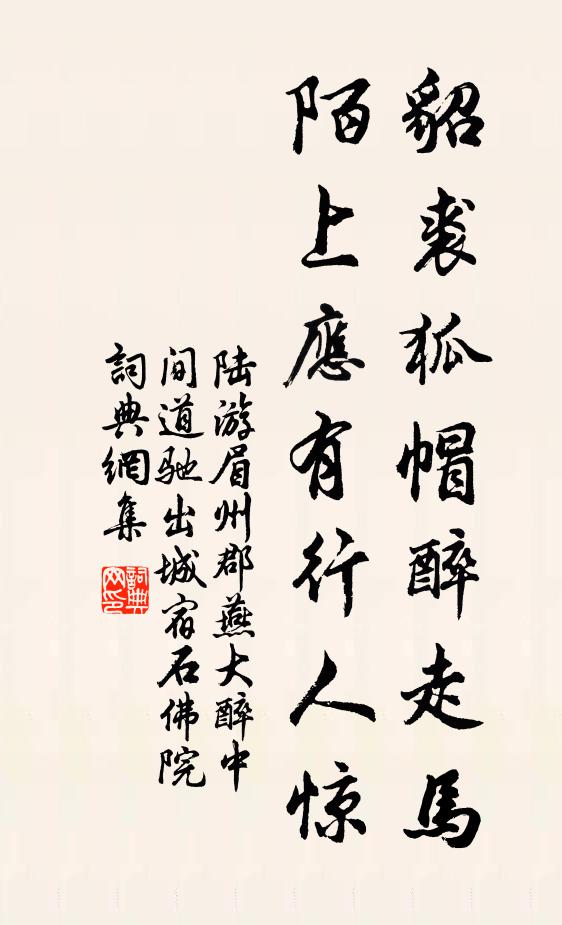 貂裘狐帽醉走馬
陌上應有行人惊
陆游眉州郡燕大醉中
间道驰出城宿石佛院
詞典網集
詞典网印